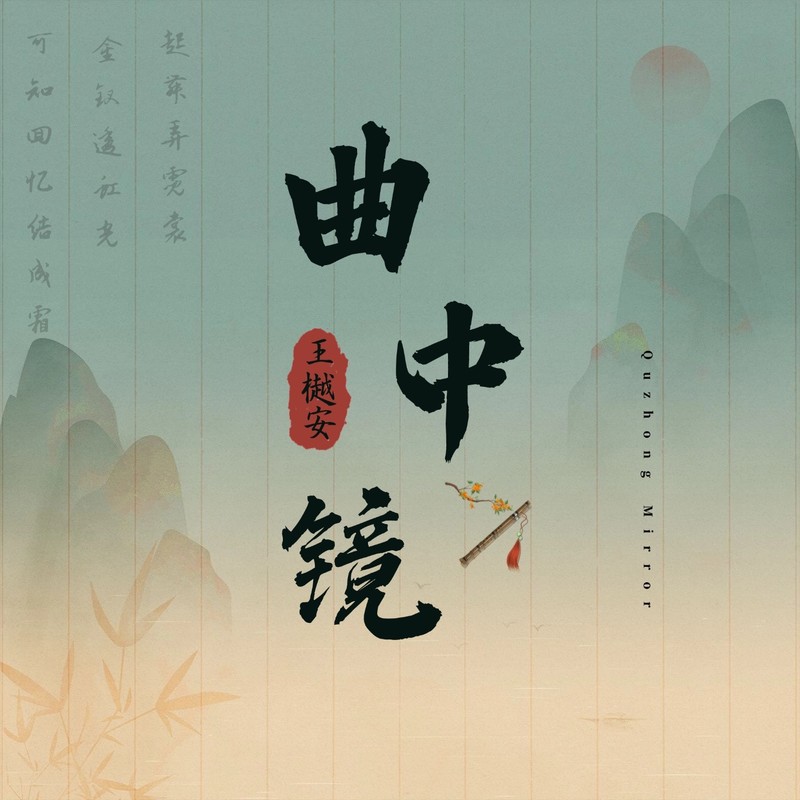 起舞弄霓裳
金钗遥红光
可知回忆结成霜
曲中镜
王樾安
Quzhong Mirror